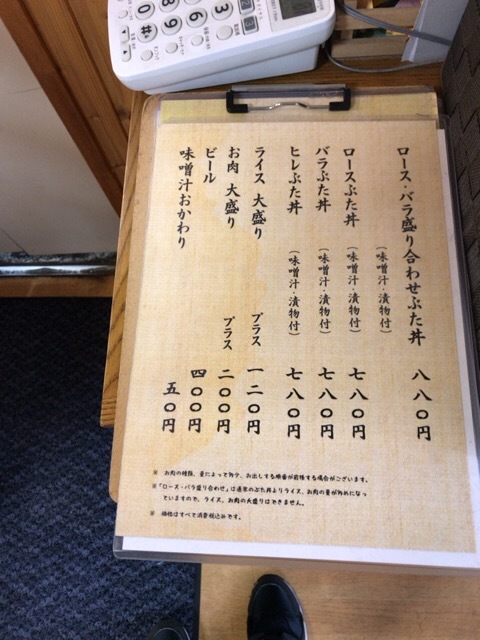 ロース・バラ盛り合わせぶた丼 八八〇円
(味噌汁・漬物付)
ロースぶた丼 (味噌汁・漬物付) 七八〇円
バラぶた丼 (味噌汁・漬物付) 七八〇円
ヒレぶた丼 (味噌汁・漬物付) 七八〇円
ライス 大盛り プラス 一二〇円
お肉 大盛り プラス 二〇〇円
ビール 四〇〇円
味噌汁おかわり 五〇円
※ お肉の種類、量によって多少、お出しする順番が前後する場合がございます。
※「ロース・バラ盛り合わせ」は通常のぶた丼よりライス、お肉の量が多めになっ
ていますので、ライス、お肉の大盛りはできません。
※ 価格はすべて消費税込みです。